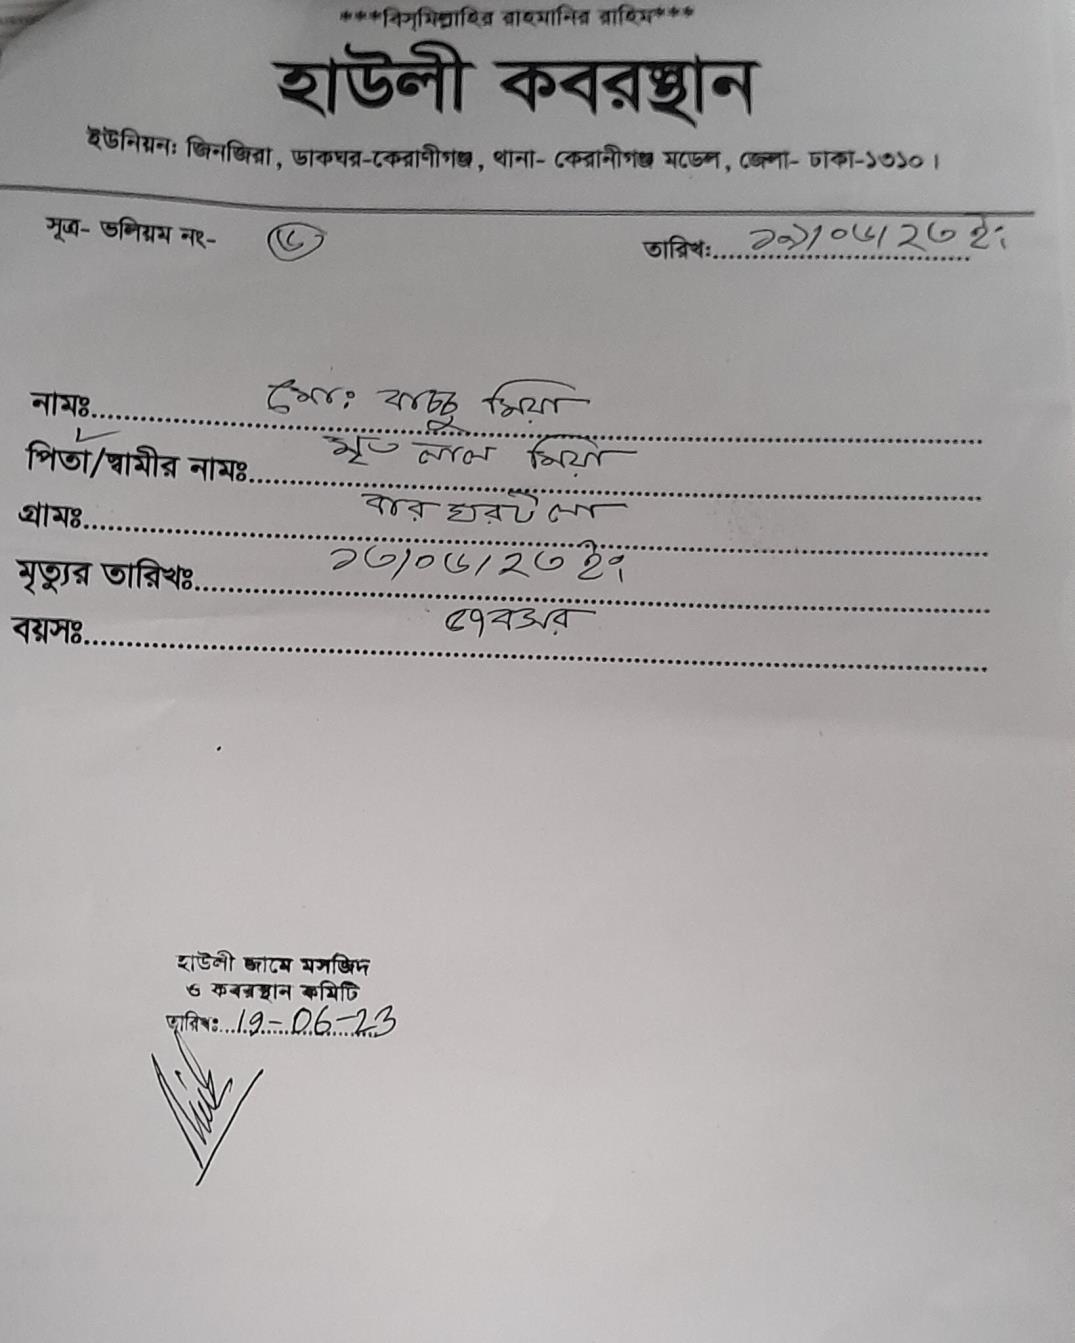 ***বিসমিল্লাহির রাহমানির রাহিম***
হাউলী কবরস্থান
ইউনিয়ন: জিনজিরা, ডাকঘর-কেরাণীগঞ্জ, থানা- কেরানীগঞ্জ মডেল, জেলা- ঢাকা-১৩১০।
সূত্র- ভলিয়ম নং- ৬
তারিখ: ১৯/০৬/২৩ ইং
নামঃ মোঃ বাচ্চু মিয়া
পিতা/স্বামীর নামঃ মৃত লাল মিয়া
গ্রামঃ
মৃত্যুর তারিখঃ ১৩/০৬/২৩ ইং
বয়সঃ ৫৭ বৎসর
হাউলী জামে মসজিদ
ও কবরস্থান কমিটি
তারিখঃ 19-06-23